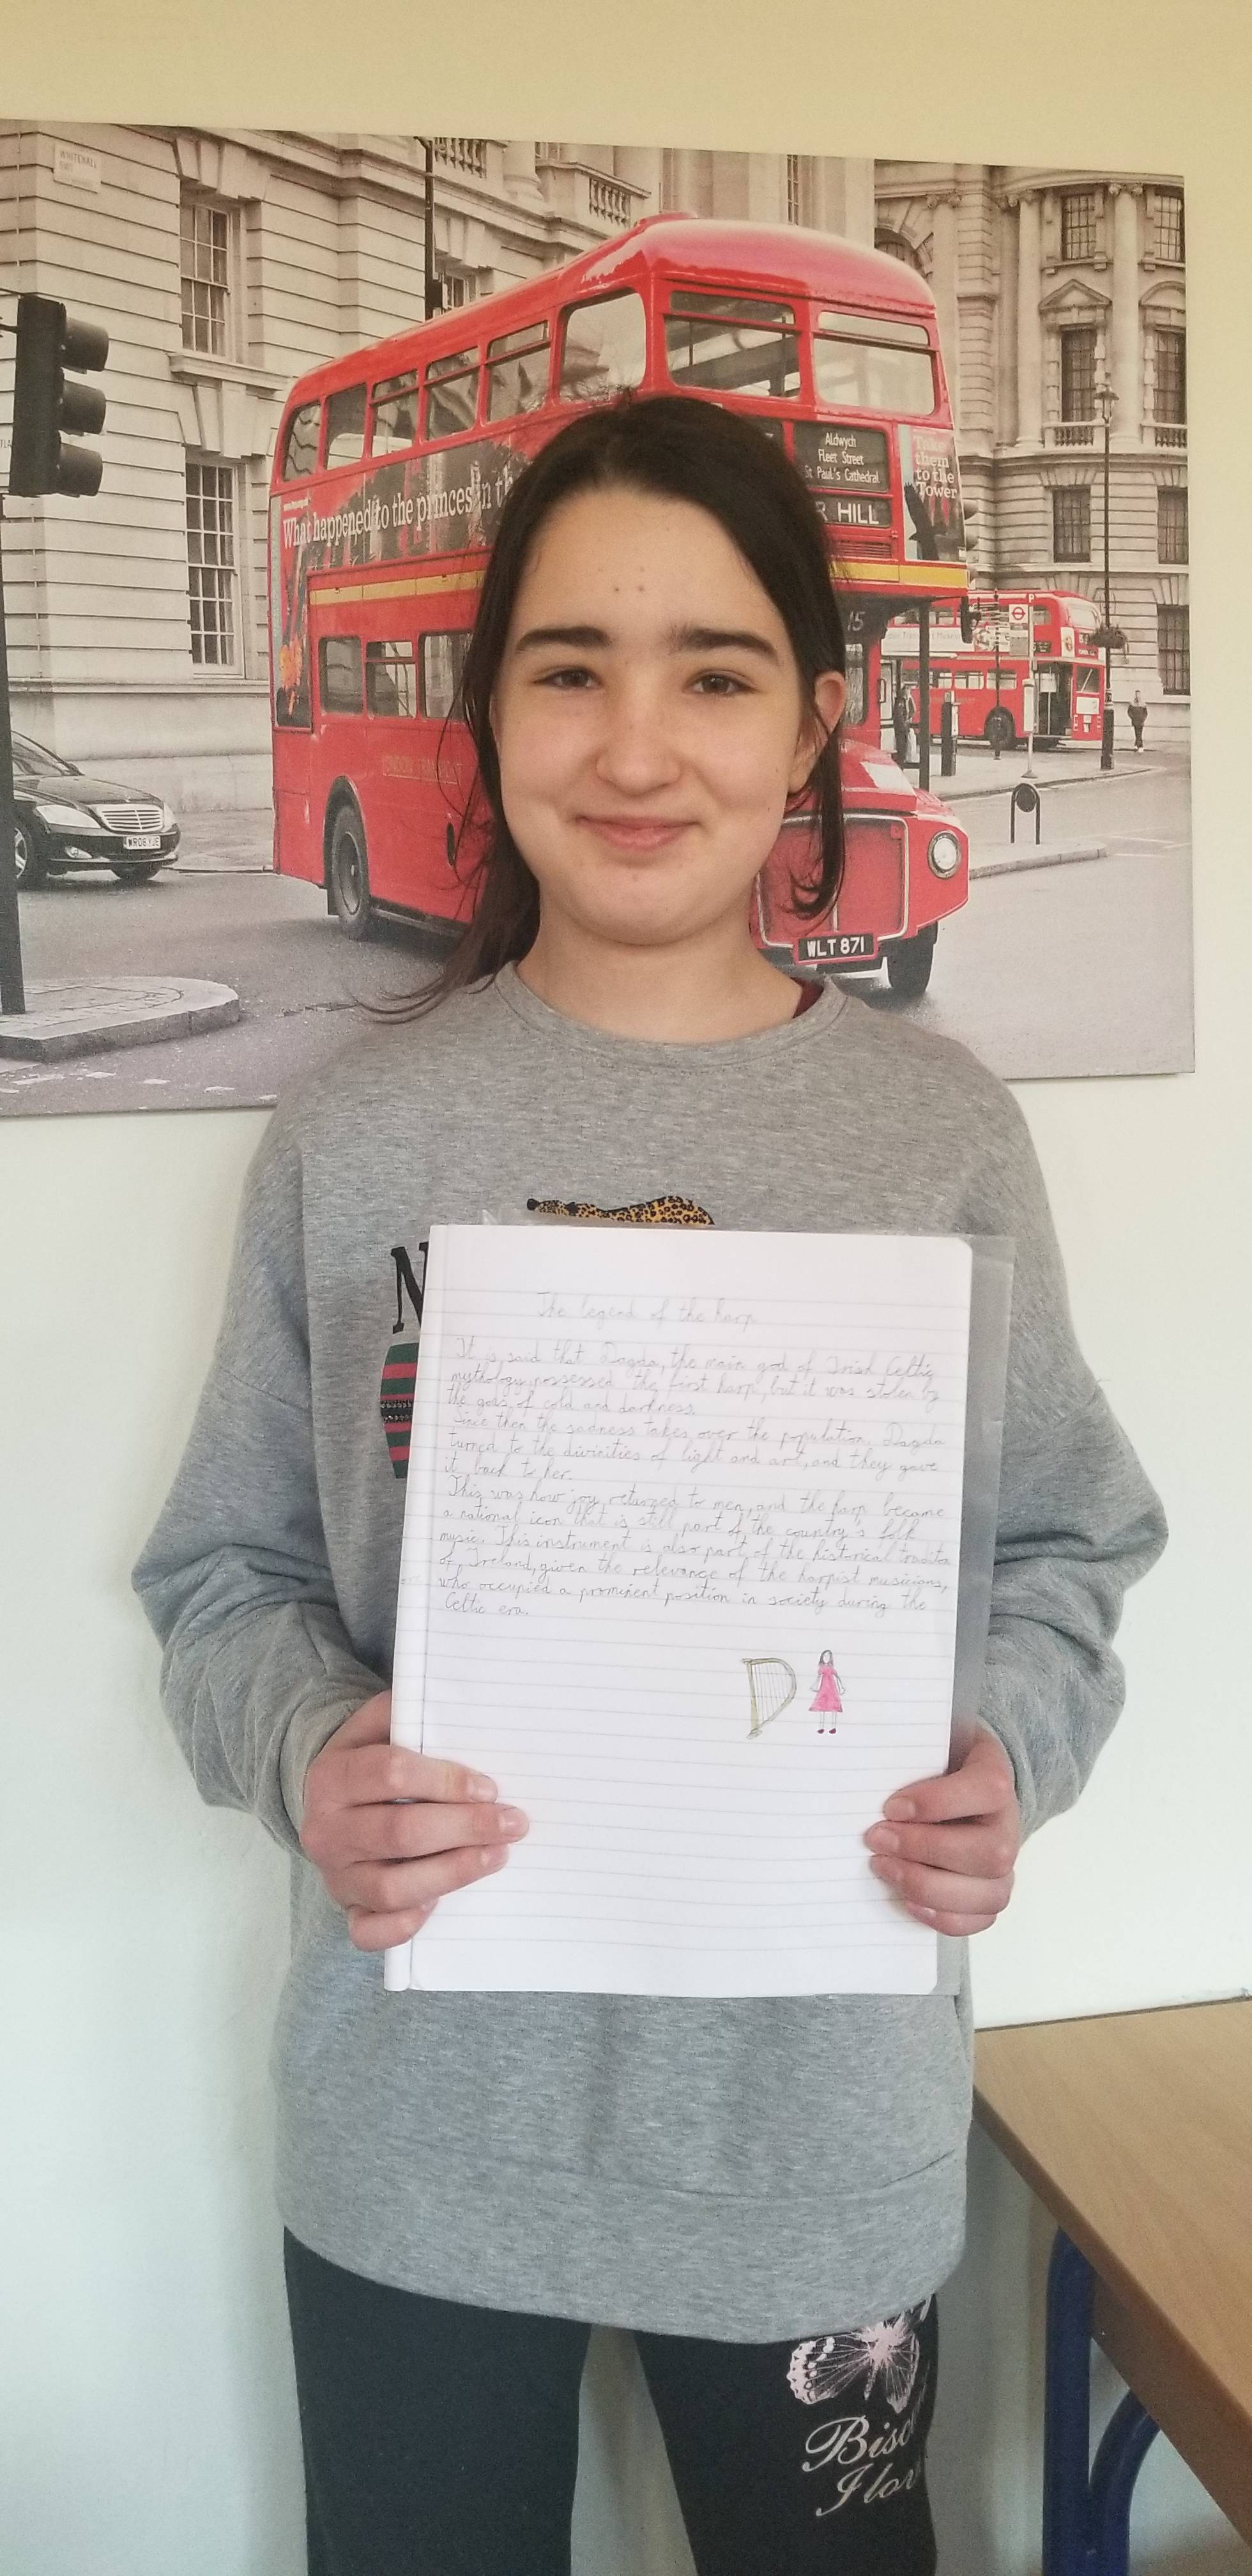 WHITEHALL
SW1
www.hrp.org.uk
What happened to the princes in th
Aldwych
Fleet Street
St Paul's Cathedral
R HILL
Take
them
to the
Tower
15
LONDON TRANSPORT
WR08 YJE
WLT 871
N
The legend of the harp
It is said that Dagda, the main god of Irish Celtic
mythology possessed the first harp, but it was stolen by
the gods of cold and darkness.
Since then the sadness takes over the population. Dagda
turned to the divinities of light and art, and they gave
it back to her.
This was how joy returned to men, and the harp became
a national icon that is still part of the country's folk
music. This instrument is also part of the historical tradition
of Ireland, given the relevance of the harpist musicians,
who occupied a prominent position in society during the
Celtic era.
Bisc
I lov